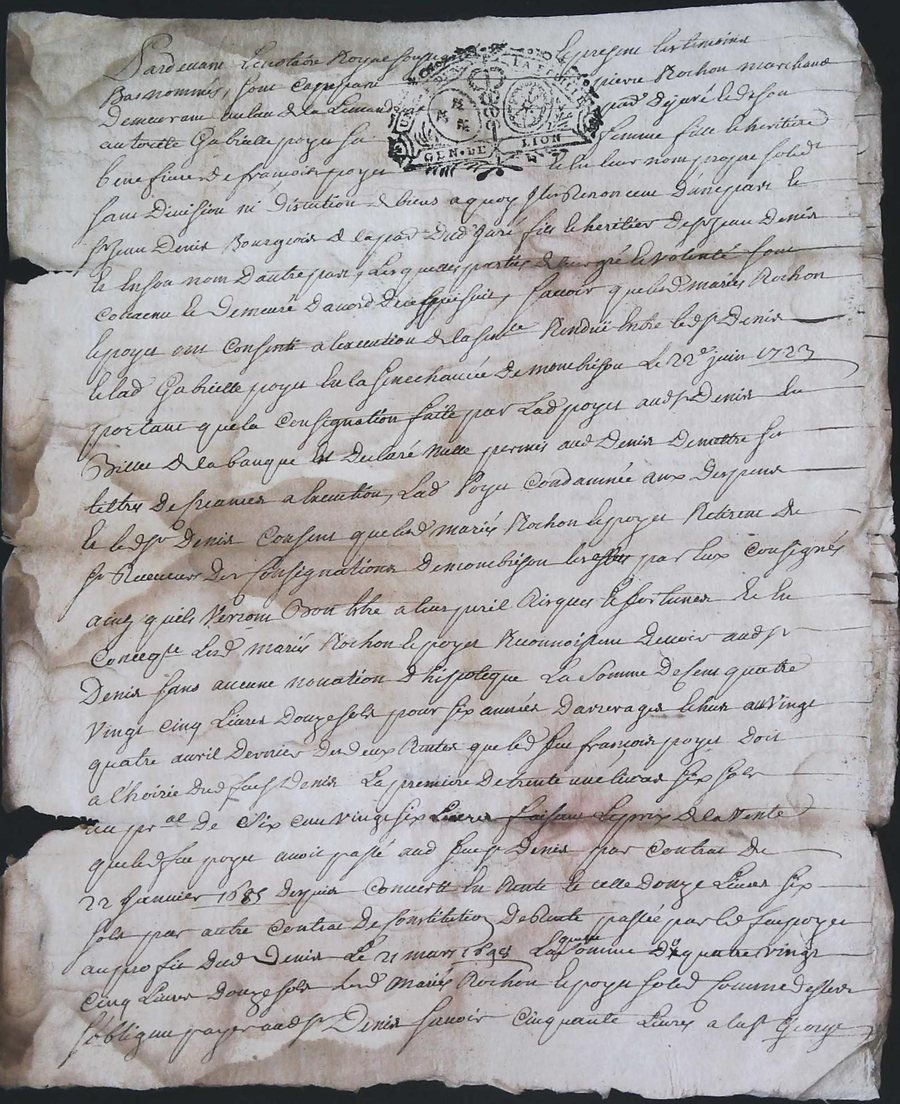 Pardevant Le notaire Royal sousigné present les temoins
Bas nommés, sont comparus pierre Rochon marchand
Demeurant au lieu de la Limand par d'ejuré le de son
autorité Gabrielle poyet sa femme fille le heritiere
beneficiere de francois poyet le en leur nom propre solid
sans Division ni discution de biens a quoy Ils Renoncent d'une part le
Sr Jean Denis Bourgeois de la par dud Juré fils le heritier de Sr Jean Denis
le en son nom D'autre part, Lesquelles parties de leur gré le volonté sont
convenu le Demeuré d'acord de ce qui suit, savoir que lesd mariés Rochon
le poyet ont Consenti a lexecution de la sance Renduë entre led Sr Denis
le lad Gabrielle poyet en la senechaucée de monbrison Le 22e juin 1723
portant que la Consignation faitte par Lad poyet aud Sr Denis en
Billet de la banque est Declaré Nulle permis aud Denis De mettre sa
lettre de a lexecution, Lad Poyet Condamnée aux despens
le led Sr Denis Consent que lesd mariés Rochon le poyet Retirent de
Sr Receveur des Consignations de monbrison les par eux Consignés
ainsy quils verront Bon estre a leur peril Risques le fortunes le en
Conceqe Lesd mariés Rochon le poyet Reconnoissent Devoir aud Sr
Denis sans aucune novation d'hipoteque La Somme de Cent quatre
vingt cinq Livres Douze sols pour six années d'arrerages Echus au vingt
quatre avril Dernier des deux Rentes que led feu francois poyet Doit
a l'hoirie dud feu Sr Denis La premiere de trente une livres six sols
au pral de Six cent vingt six Livres faisant Le prix de la vente
que led feu poyet avoit passé aud feu Sr Denis par Contrat du
22 Janvier 1685 despuis Converti en Rente le celle douze Livres six
sols par autre Contrat de Constitution de Rente passée par led feu poyet
au profit dud Denis Le 21 mars 1698 Laquelle Somme De quatre vingt
cinq Livres Douze sols Lesd Mariés Rochon le poyet solid comme dessus
s'obligent payer aud Sr Denis savoir Cinquante Livres a la St George
GEN·DE LION